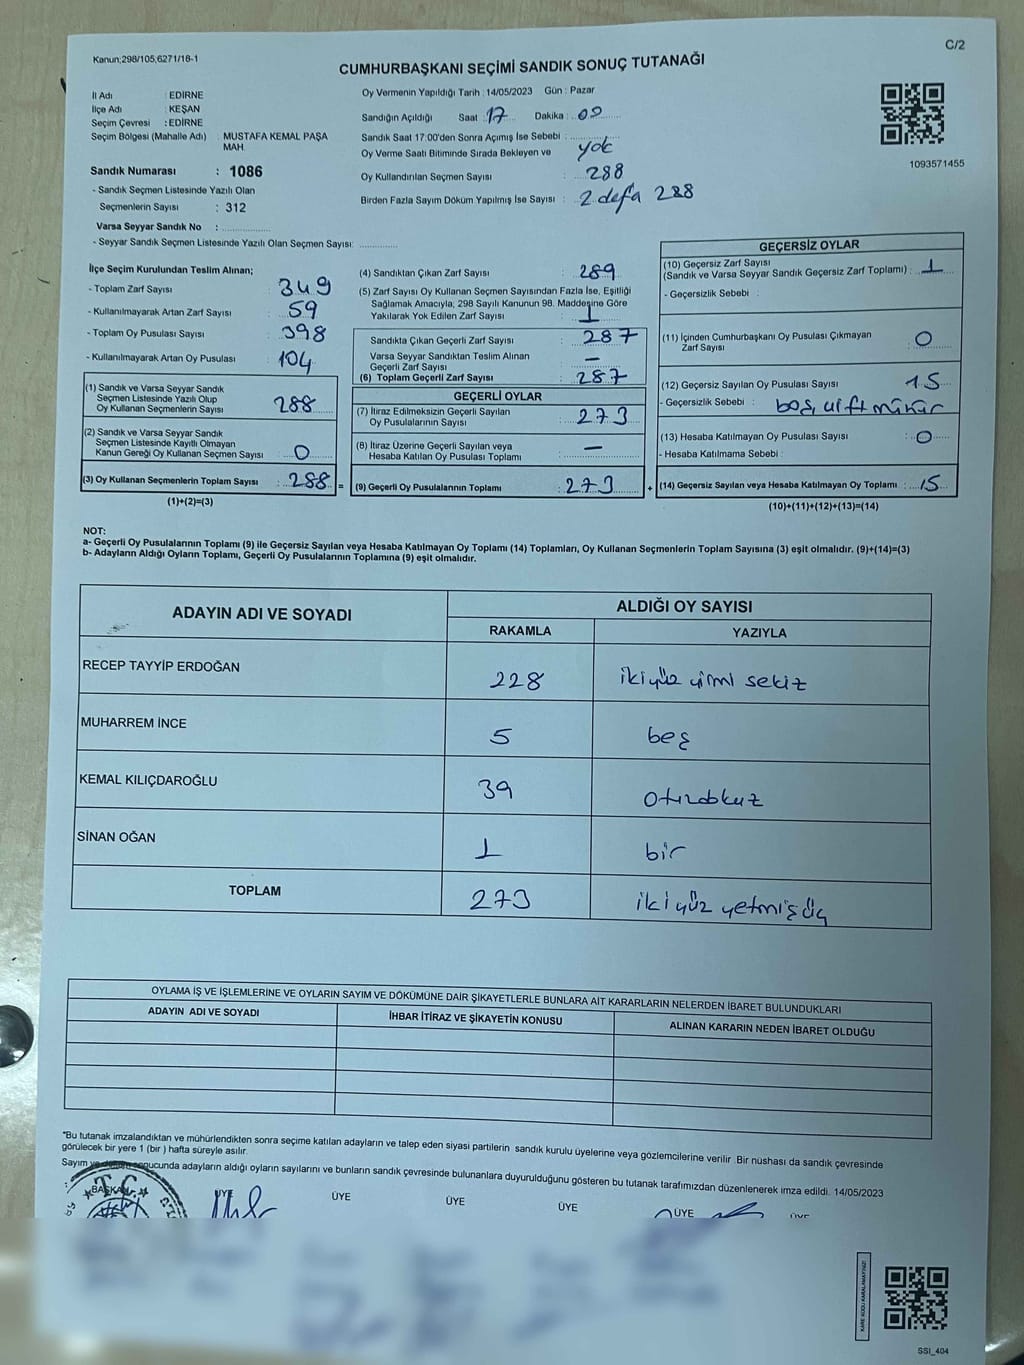 Kanun;298/105,6271/18-1
C/2
CUMHURBAŞKANI SEÇİMİ SANDIK SONUÇ TUTANAĞI
İl Adı : EDİRNE
İlçe Adı : KEŞAN
Seçim Çevresi : EDİRNE
Seçim Bölgesi (Mahalle Adı) : MUSTAFA KEMAL PAŞA
MAH.
Sandık Numarası : 1086
- Sandık Seçmen Listesinde Yazılı Olan
Seçmenlerin Sayısı : 312
Varsa Seyyar Sandık No :
- Seyyar Sandık Seçmen Listesinde Yazılı Olan Seçmen Sayısı:
Oy Vermenin Yapıldığı Tarih : 14/05/2023 Gün : Pazar
Sandığın Açıldığı Saat 17 Dakika : 09
Sandık Saat 17:00'den Sonra Açımış İse Sebebi :
Oy Verme Saati Bitiminde Sırada Bekleyen ve yok
Oy Kullandırılan Seçmen Sayısı : 288
Birden Fazla Sayım Döküm Yapılmış İse Sayısı : 2 defa 288
1093571455
İlçe Seçim Kurulundan Teslim Alınan;
- Toplam Zarf Sayısı : 349
- Kullanılmayarak Artan Zarf Sayısı : 59
- Toplam Oy Pusulası Sayısı : 398
- Kullanılmayarak Artan Oy Pusulası : 104
(1) Sandık ve Varsa Seyyar Sandık
Seçmen Listesinde Yazılı Olup
Oy Kullanan Seçmenlerin Sayısı : 288
(2) Sandık ve Varsa Seyyar Sandık
Seçmen Listesinde Kayıtlı Olmayan
Kanun Gereği Oy Kullanan Seçmen Sayısı : 0
(3) Oy Kullanan Seçmenlerin Toplam Sayısı : 288 =
(1)+(2)=(3)
(4) Sandıktan Çıkan Zarf Sayısı : 289
(5) Zarf Sayısı Oy Kullanan Seçmen Sayısından Fazla İse, Eşitliği
Sağlamak Amacıyla, 298 Sayılı Kanunun 98. Maddesine Göre
Yakılarak Yok Edilen Zarf Sayısı : 1
Sandıkta Çıkan Geçerli Zarf Sayısı : 287
Varsa Seyyar Sandıktan Teslim Alınan
Geçerli Zarf Sayısı : —
(6) Toplam Geçerli Zarf Sayısı : 287
GEÇERLİ OYLAR
(7) İtiraz Edilmeksizin Geçerli Sayılan
Oy Pusulalarının Sayısı : 273
(8) İtiraz Üzerine Geçerli Sayılan veya
Hesaba Katılan Oy Pusulası Toplamı : —
(9) Geçerli Oy Pusulalarının Toplamı : 273 +
GEÇERSİZ OYLAR
(10) Geçersiz Zarf Sayısı
(Sandık ve Varsa Seyyar Sandık Geçersiz Zarf Toplamı) : 1
- Geçersizlik Sebebi :
(11) İçinden Cumhurbaşkanı Oy Pusulası Çıkmayan
Zarf Sayısı : 0
(12) Geçersiz Sayılan Oy Pusulası Sayısı : 15
- Geçersizlik Sebebi : boş, çift mühür
(13) Hesaba Katılmayan Oy Pusulası Sayısı : 0
- Hesaba Katılmama Sebebi :
(14) Geçersiz Sayılan veya Hesaba Katılmayan Oy Toplamı : 15
(10)+(11)+(12)+(13)=(14)
NOT:
a- Geçerli Oy Pusulalarının Toplamı (9) ile Geçersiz Sayılan veya Hesaba Katılmayan Oy Toplamı (14) Toplamları, Oy Kullanan Seçmenlerin Toplam Sayısına (3) eşit olmalıdır. (9)+(14)=(3)
b- Adayların Aldığı Oyların Toplamı, Geçerli Oy Pusulalarının Toplamına (9) eşit olmalıdır.
ADAYIN ADI VE SOYADI
ALDIĞI OY SAYISI
RAKAMLA YAZIYLA
RECEP TAYYİP ERDOĞAN 228 ikiyüz yirmi sekiz
MUHARREM İNCE 5 beş
KEMAL KILIÇDAROĞLU 39 otuzdokuz
SİNAN OĞAN 1 bir
TOPLAM 273 ikiyüz yetmişüç
OYLAMA İŞ VE İŞLEMLERİNE VE OYLARIN SAYIM VE DÖKÜMÜNE DAİR ŞİKAYETLERLE BUNLARA AİT KARARLARIN NELERDEN İBARET BULUNDUKLARI
ADAYIN ADI VE SOYADI İHBAR İTİRAZ VE ŞİKAYETİN KONUSU ALINAN KARARIN NEDEN İBARET OLDUĞU
*Bu tutanak imzalandıktan ve mühürlendikten sonra seçime katılan adayların ve talep eden siyasi partilerin sandık kurulu üyelerine veya gözlemcilerine verilir Bir nüshası da sandık çevresinde
görülecek bir yere 1 (bir ) hafta süreyle asılır.
Sayım ve döküm sonucunda adayların aldığı oyların sayılarını ve bunların sandık çevresinde bulunanlara duyurulduğunu gösteren bu tutanak tarafımızdan düzenlenerek imza edildi. 14/05/2023
BAŞKAN ÜYE ÜYE ÜYE ÜYE ÜYE ÜYE
T.C.
KARE KODU KARALAMAYINIZ!
SSI_404